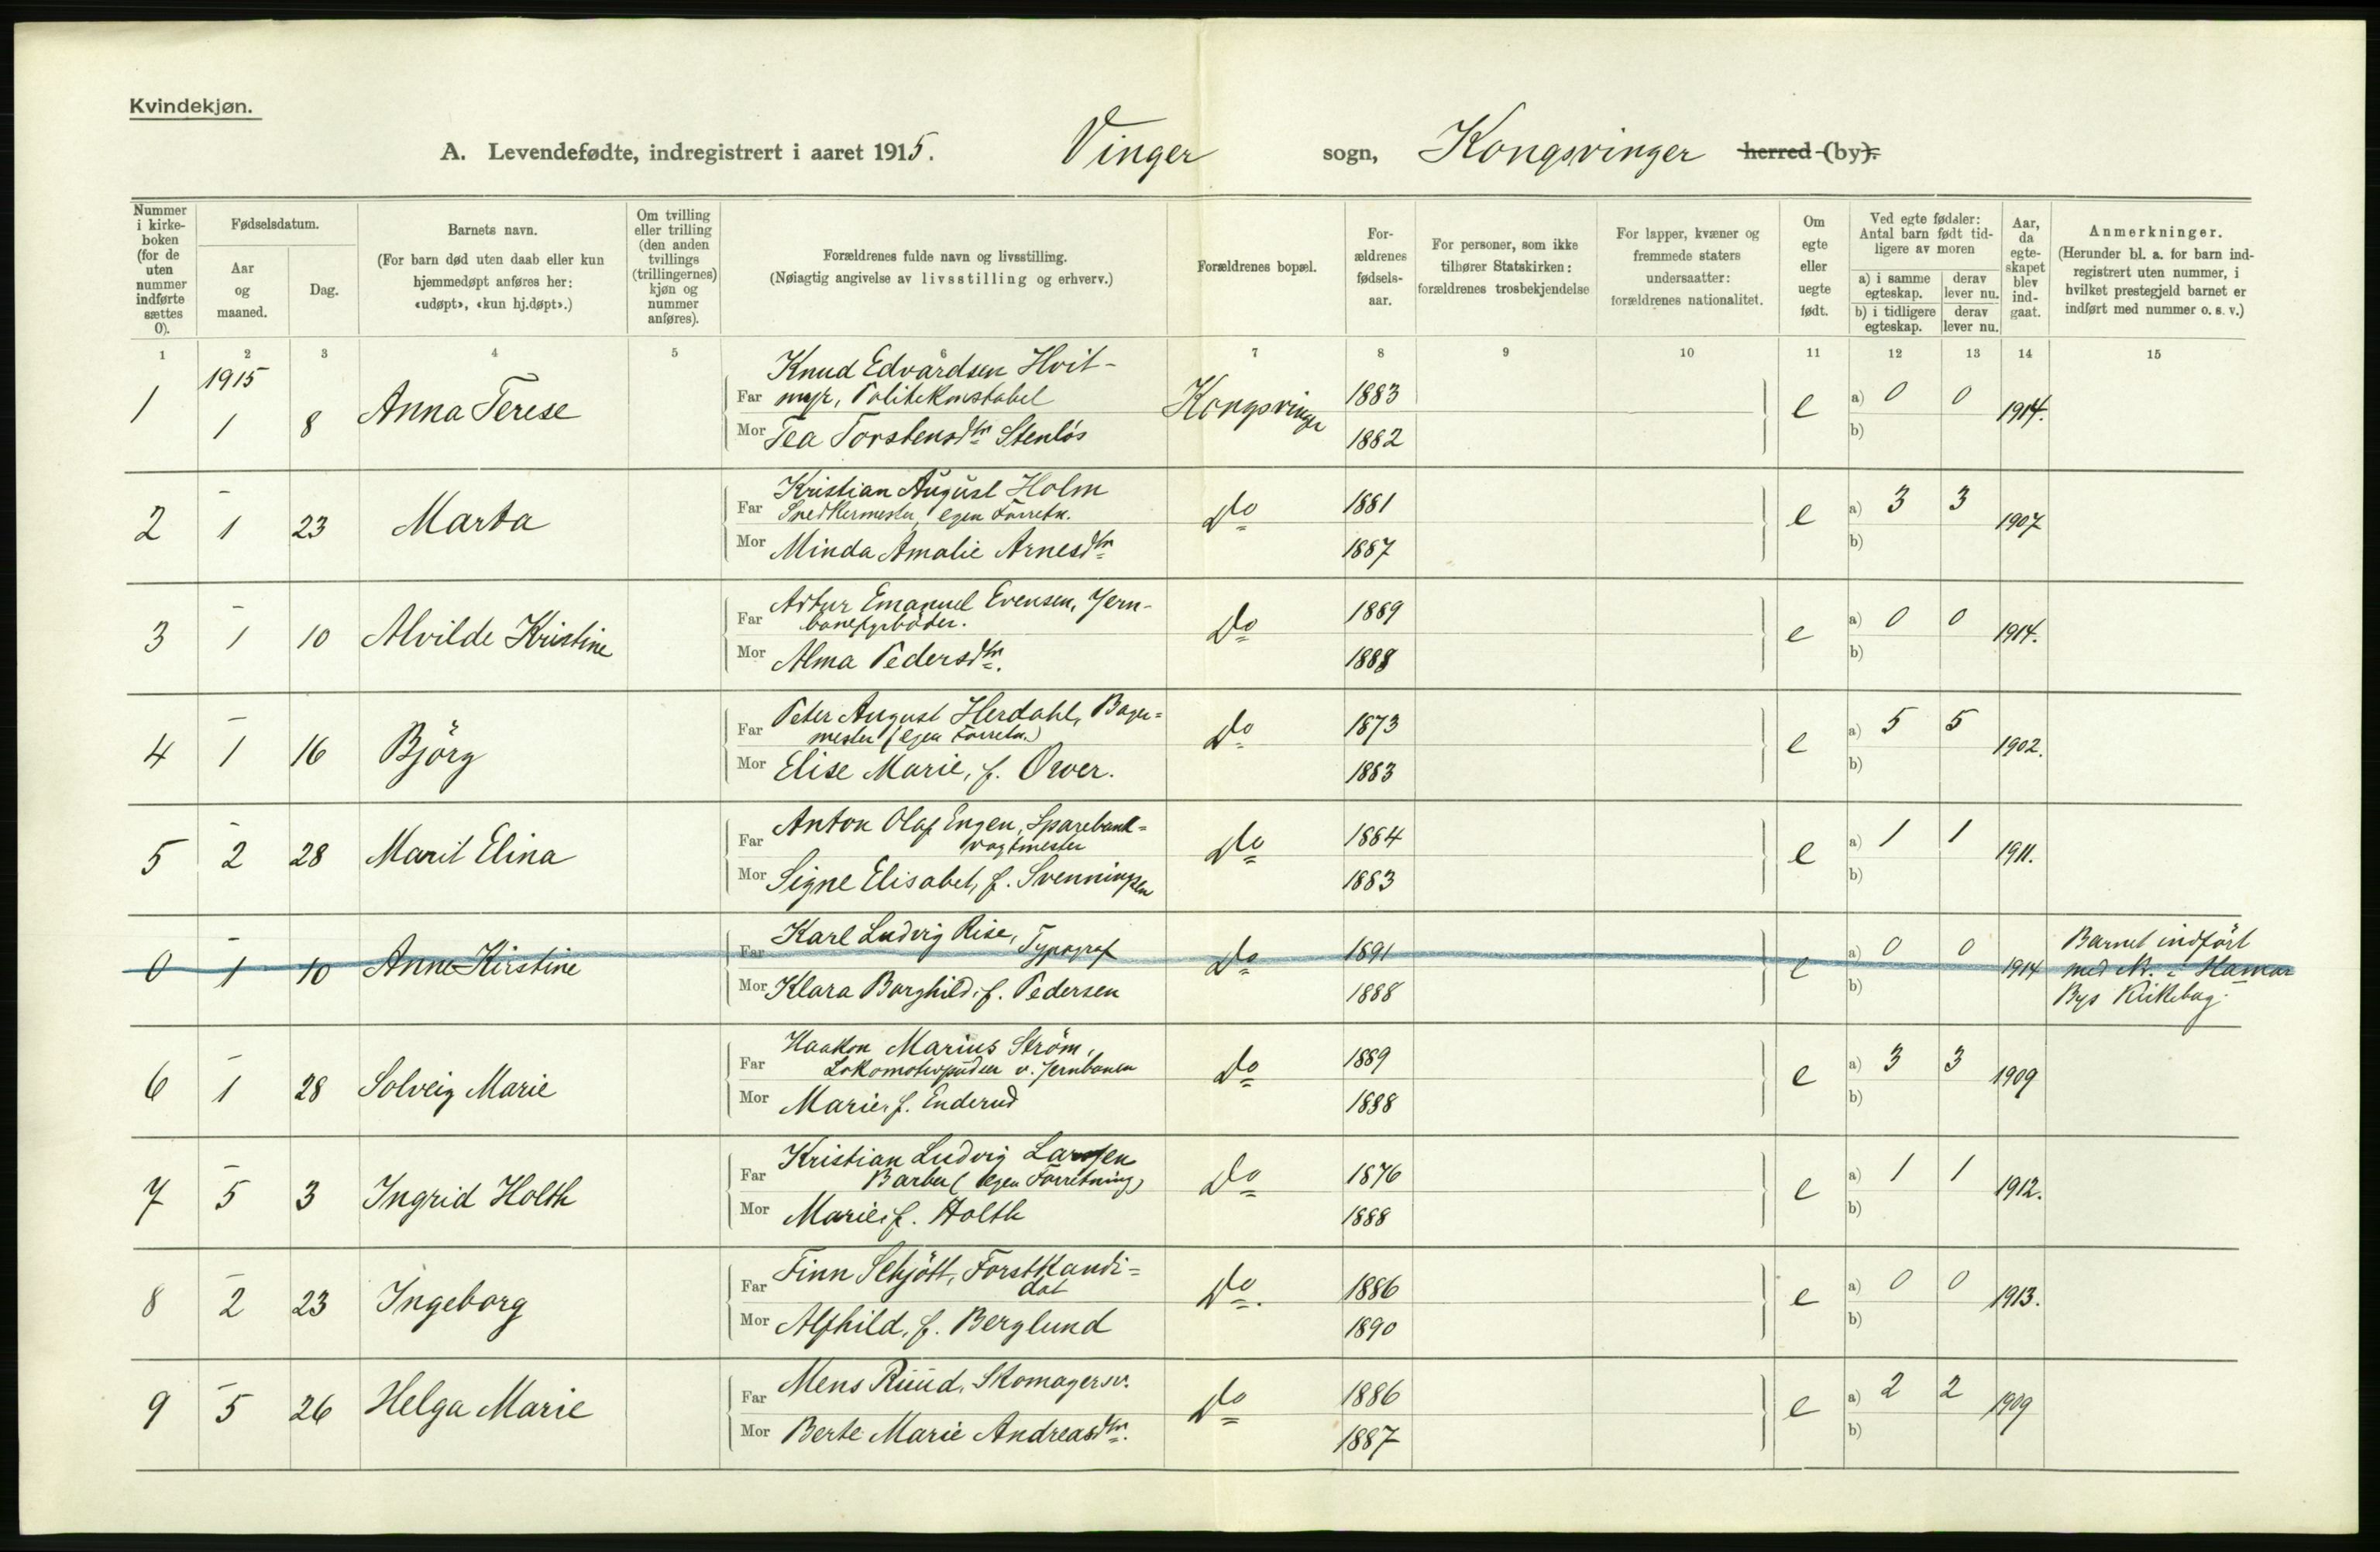 Kvindekjøn.
A. Levendefødte, indregistrert i aaret 1915. Vinger sogn, Kongsvinger herred (by).
Nummer i kirke-boken (for de uten nummer indførte sættes 0).
Fødselsdatum.
Aar og maaned.
Dag.
Barnets navn.
(For barn død uten daab eller kun hjemmedøpt anføres her: «udøpt», «kun hj.døpt».)
Om tvilling eller trilling (den anden tvillings (trillingernes) kjøn og nummer anføres).
Forældrenes fulde navn og livsstilling.
(Nøiagtig angivelse av livsstilling og erhverv.)
Forældrenes bopæl.
For-ældrenes fødsels-aar.
For personer, som ikke tilhører Statskirken: forældrenes trosbekjendelse
For lapper, kvæner og fremmede staters undersaatter: forældrenes nationalitet.
Om egte eller uegte født.
Ved egte fødsler: Antal barn født tid-ligere av moren
a) i samme egteskap. derav lever nu.
b) i tidligere egteskap. derav lever nu.
Aar, da egte-skapet blev ind-gaat.
Anmerkninger.
(Herunder bl. a. for barn ind-registrert uten nummer, i hvilket prestegjeld barnet er indført med nummer o. s. v.)
1 2 3 4 5 6 7 8 9 10 11 12 13 14 15
1915
Knud Edvardsen Hvit-
1 1 8 Anna Terese Far myr, Politikonstabel Kongsvinger 1883 e a) 0 0 1914.
Mor Tea Torstensdtr Stenlös 1882 b)
Kristian August Holm
2 - 1 23 Marta Far Snedkermester, egen Forretn. Do 1881 e a) 3 3 1907
Mor Minda Amalie Arnesdtr 1887 b)
Artur Emanuel Evensen, Jern-
3 - 1 10 Alvilde Kristine Far banearbeider. Do 1889 e a) 0 0 1914.
Mor Alma Pedersdtr. 1888 b)
Peter August Herdahl, Bager=
4 - 1 16 Björg Far mester (egen Forretn.) Do 1873 e a) 5 5 1902.
Mor Elise Marie, f. 1883 b)
Anton Olaf Engen, Sparebank=
5 - 2 28 Marit Elina Far vagtmester Do 1884 e a) 1 1 1911.
Mor Signe Elisabet, f. Svenningsen 1883 b)
Karl Ludvig Rise, Typograf
0 - 1 10 Anne Kirstine Far Do 1891 e a) 0 0 1914 Barnet indført
med Nr. i Hamar
Mor Klara Borghild, f. Pedersen 1888 b) Bys Kirkebog.
Haakon Marius Ström,
6 - 1 28 Solveig Marie Far Lokomotivpudser v. Jernbanen Do 1889 e a) 3 3 1909
Mor Marie, f. Enderud 1888 b)
Kristian Ludvig Larsen
7 - 5 3 Ingrid Holth Far Barber (egen Forretning) Do 1876 e a) 1 1 1912.
Mor Marie, f. Holth 1888 b)
Finn Schjött, Forstkandi=
8 - 2 23 Ingeborg Far dat Do. 1886 e a) 0 0 1913.
Mor Alfhild, f. Berglund 1890 b)
9 - 5 26 Helga Marie Far Mens Ruud, Skomagersv. Do 1886 e a) 2 2 1909
Mor Berte Marie Andreasdtr. 1887 b)